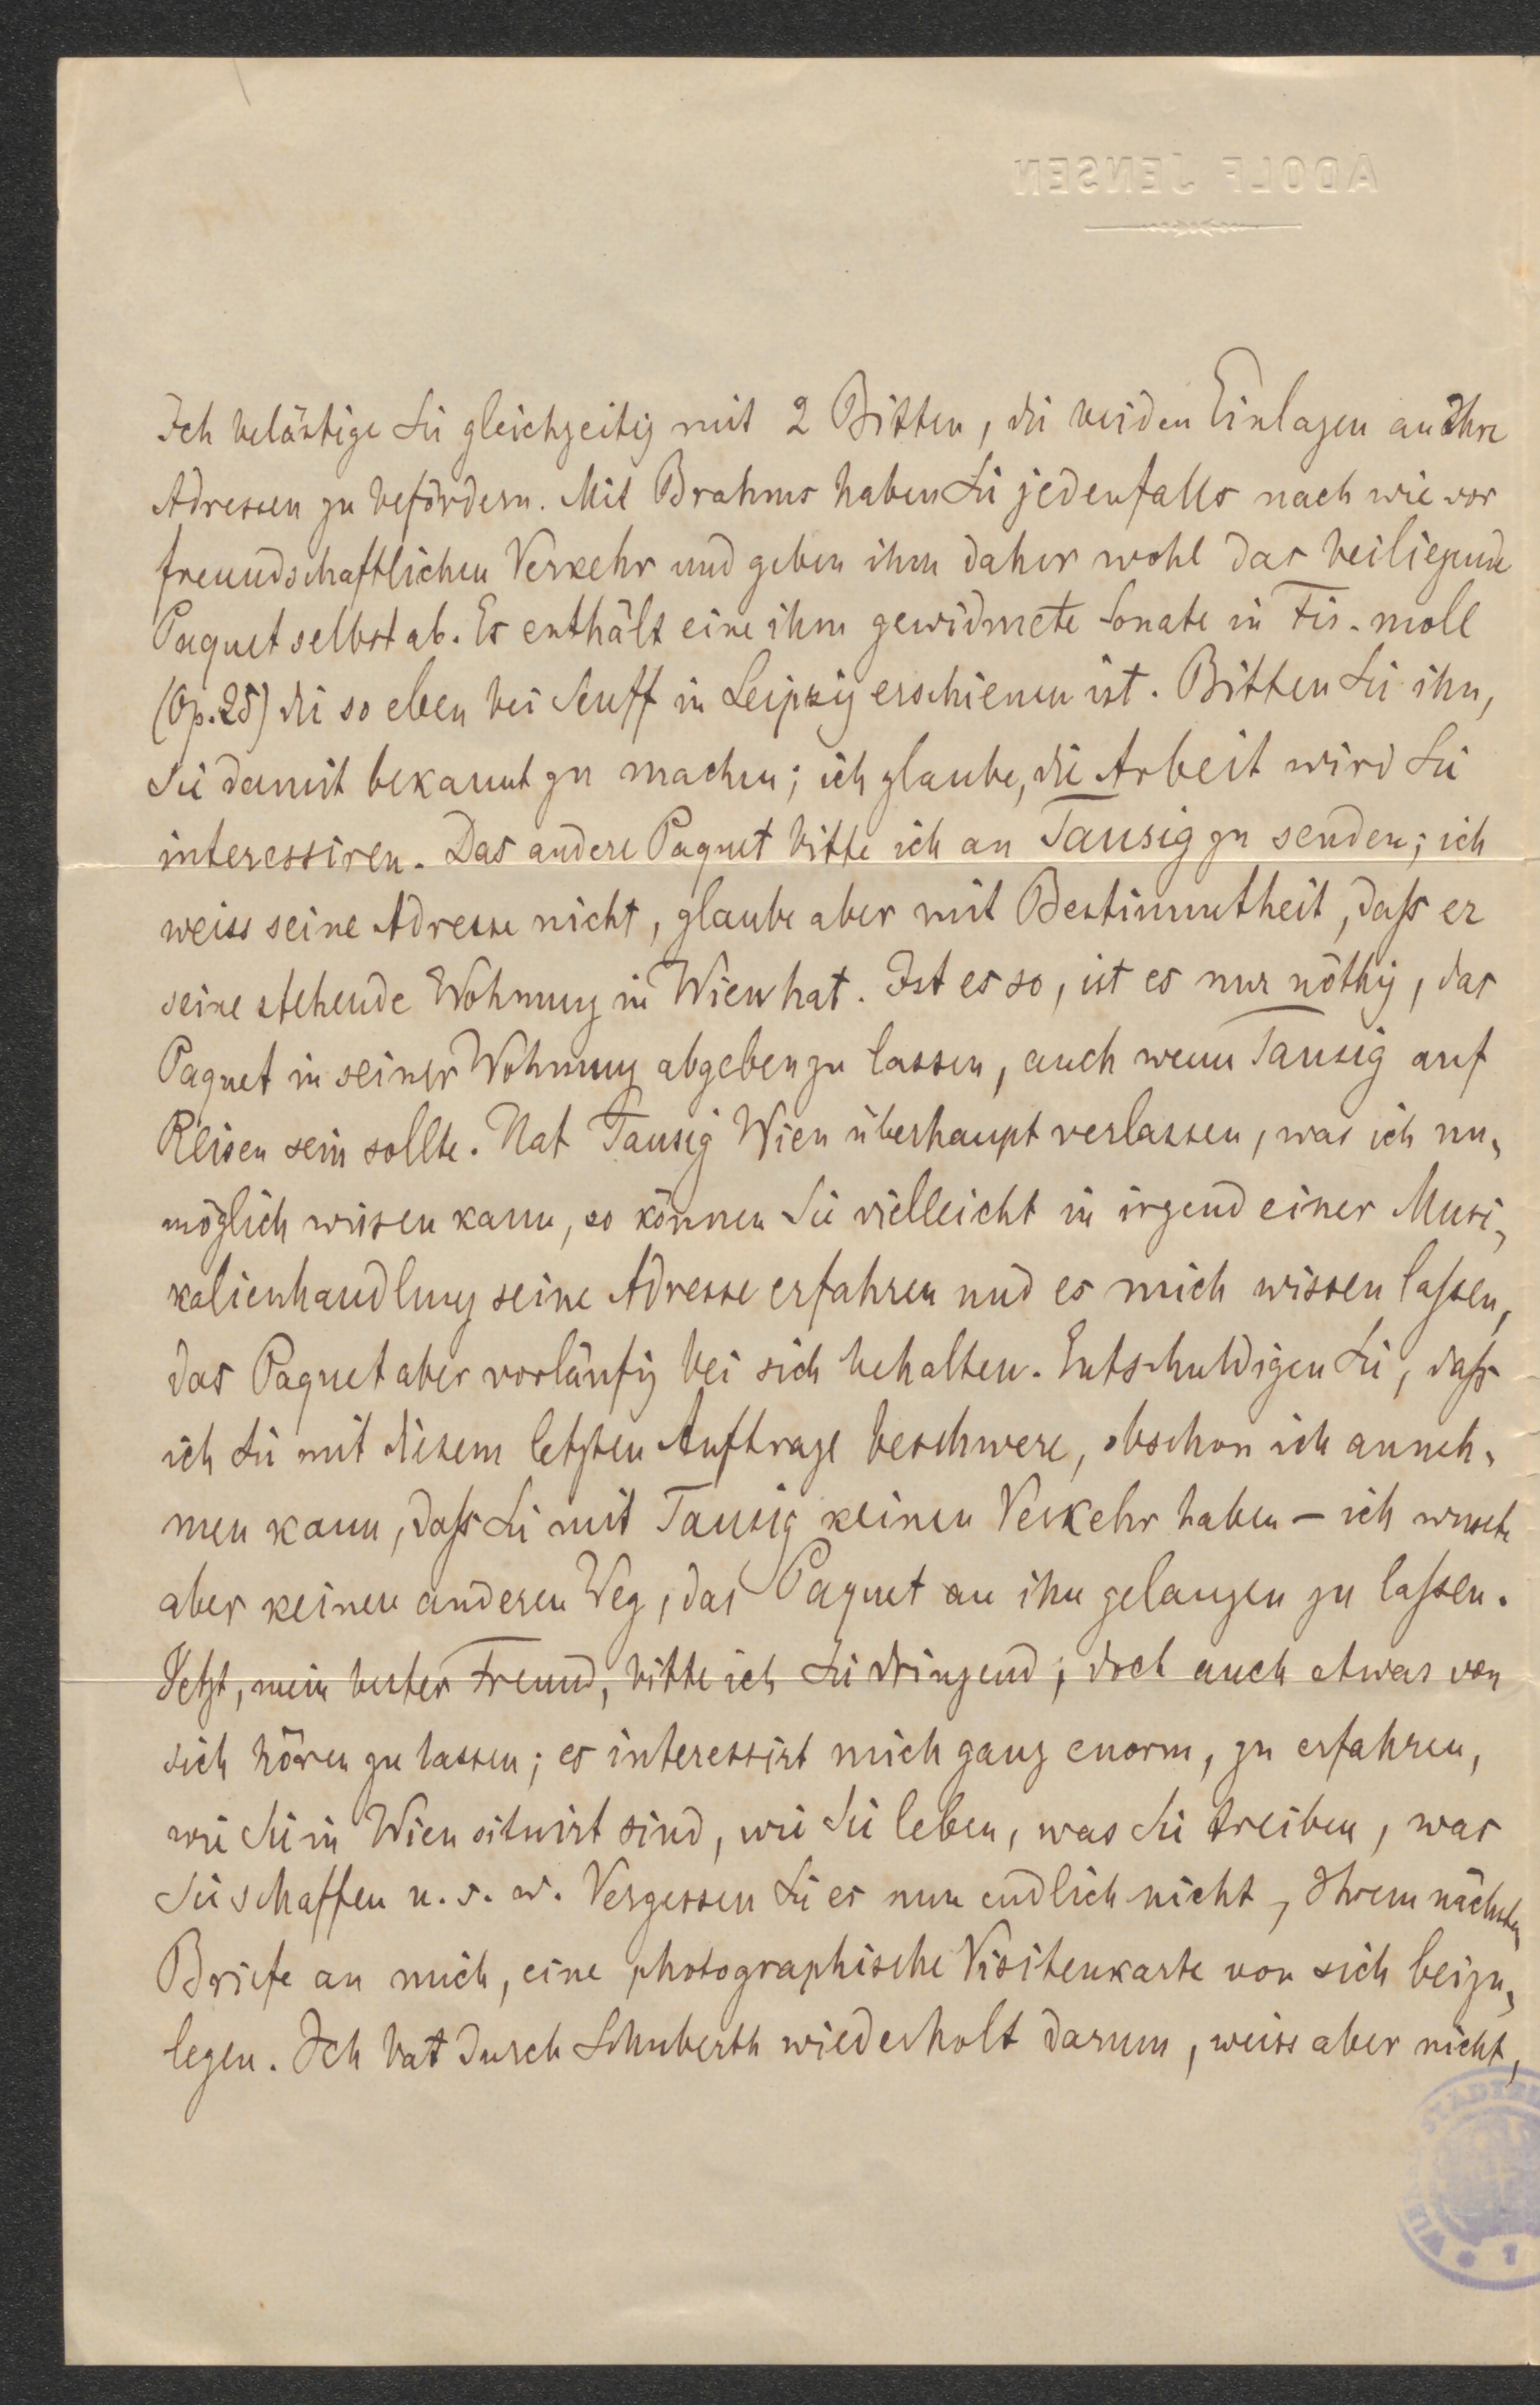 ADOLF JENSEN
Ich belästige Sie gleichzeitig mit 2 Bitten, die beiden Einlagen an Ihre
Adressen zu befördern. Mit Brahms haben Sie jedenfalls nach wie vor
freundschaftlichen Verkehr und geben ihm daher wohl das beiliegende
Paquet selbst ab. Es enthält eine ihm gewidmete Sonate in Fis-moll
(Op. 25) die so eben bei Senff in Leipzig erschienen ist. Bitten Sie ihn,
Sie damit bekannt zu machen; ich glaube, die Arbeit wird Sie
interessiren. Das andere Paquet bitte ich an Tausig zu senden; ich
weiss seine Adresse nicht, glaube aber mit Bestimmtheit, daß er
seine stehende Wohnung in Wien hat. Ist es so, ist es nur nöthig, das
Paquet in seiner Wohnung abgeben zu lassen, auch wenn Tausig auf
Reisen sein sollte. Hat Tausig Wien überhaupt verlassen, was ich un-
möglich wissen kann, so können Sie vielleicht in irgend einer Musi-
kalienhandlung seine Adresse erfahren und es mich wissen laßen,
das Paquet aber vorläufig bei sich behalten. Entschuldigen Sie, daß
ich Sie mit diesem letzten Auftrage beschwere, obschon ich anneh-
men kann, daß Sie mit Tausig keinen Verkehr haben – ich wusste
aber keinen anderen Weg, das Paquet an ihn gelangen zu laßen.
Jetzt, mein bester Freund, bitte ich Sie dringend, doch auch etwas von
sich hören zu lassen; es interessirt mich ganz enorm, zu erfahren,
wie Sie in Wien situirt sind, wie Sie leben, was Sie treiben, was
Sie schaffen u. s. w. Vergessen Sie es nun endlich nicht, Ihrem nächsten
Briefe an mich, eine photographische Visitenkarte von sich beizu-
legen. Ich bat durch Schuberth wiederholt darum, weiss aber nicht,